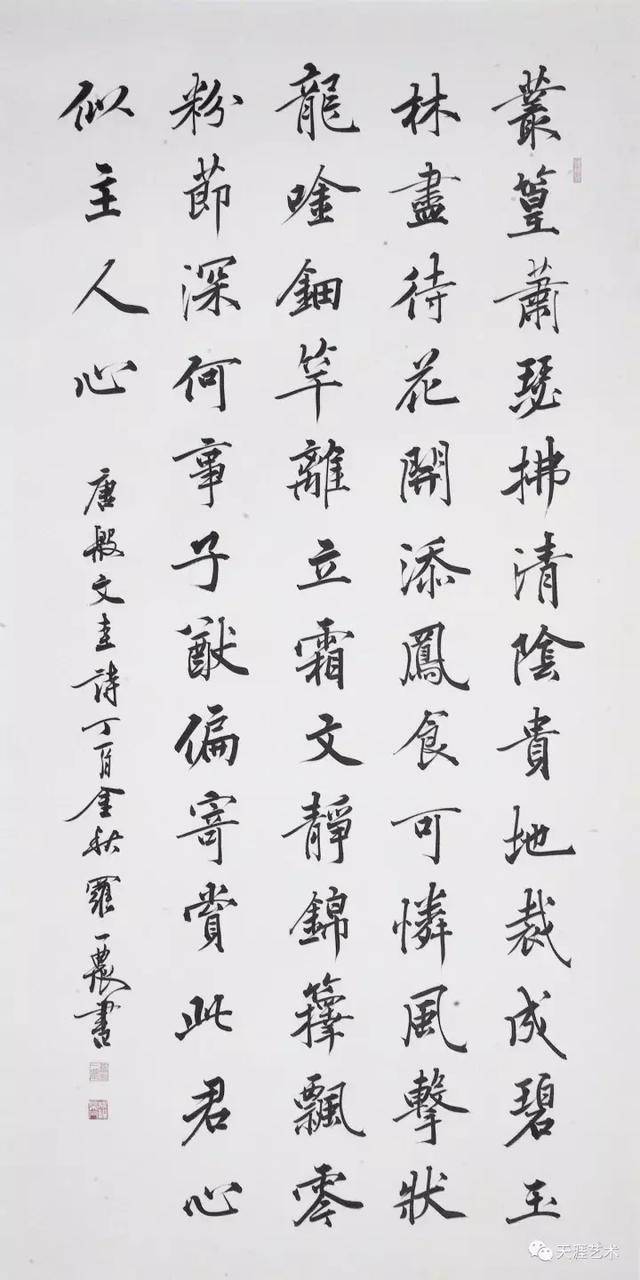 叢篁蕭瑟拂清陰貴地栽成碧玉
林盡待花開添鳳食可憐風擊狀
龍唫鈿竿離立霜文靜錦籜飄零
粉節深何事子猷偏寄賞此君心
似主人心
唐殷文圭詩丁酉金秋羅一農書
天涯艺术